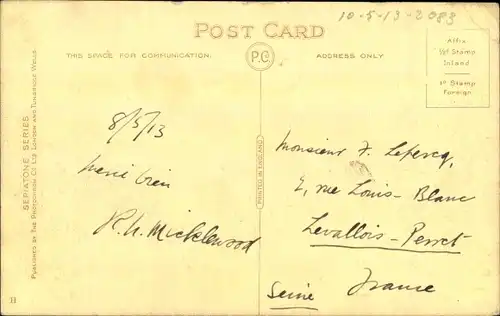 10-5-13-2083
POST CARD
THIS SPACE FOR COMMUNICATION.
P.C.
ADDRESS ONLY
Affix
½d Stamp
Inland
1d Stamp
Foreign
SEPIATONE SERIES.
PUBLISHED BY THE PHOTOCHROM CO LTD LONDON AND TUNBRIDGE WELLS
PRINTED IN ENGLAND
8/5/13
R. H. Micklewood
Monsieur F. Lepercq,
2, rue Louis-Blanc
Levallois-Perret
Seine France